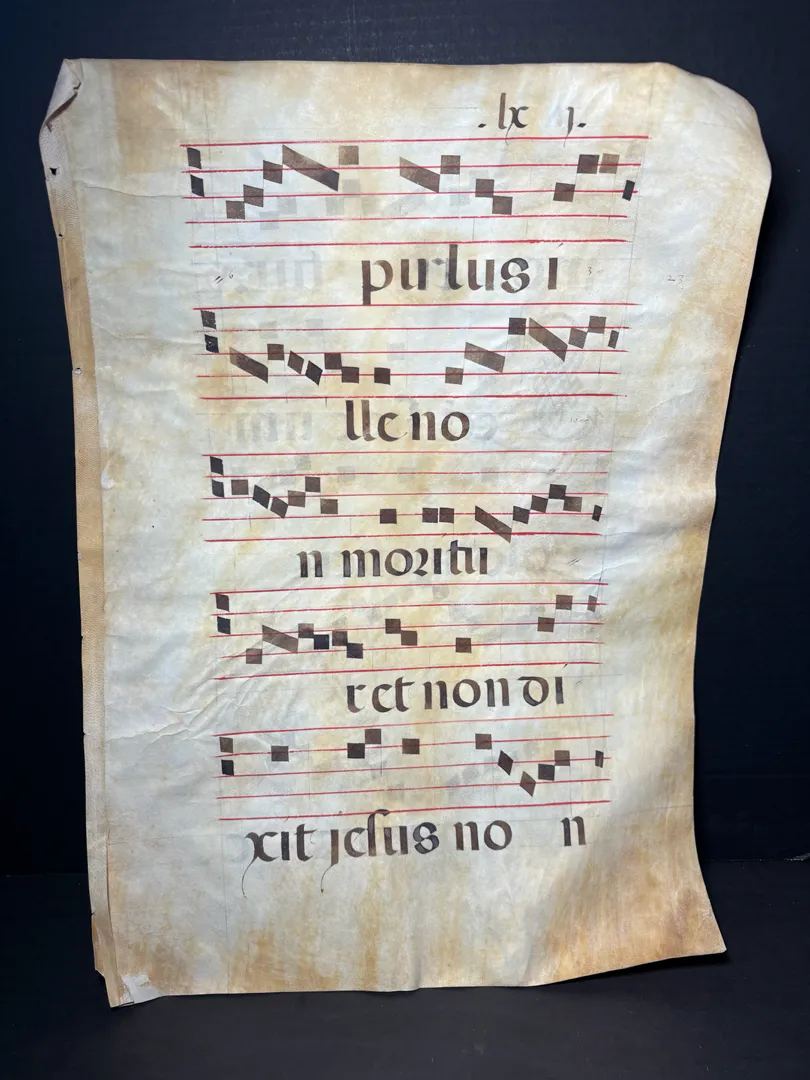 . lx j.
pulus i
lle no
n moritu
r et non di
xit jesus no n